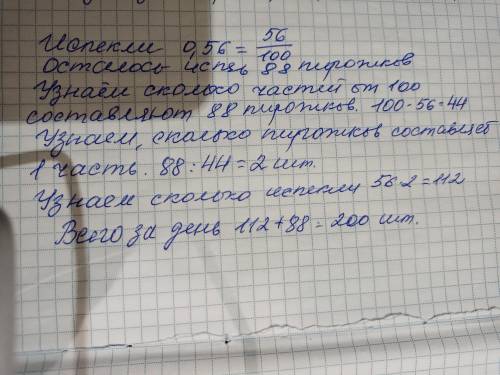 Испекли 0,56 = 56/100
Осталось испечь 88 пирожков
Узнаем сколько частей от 100
составляют 88 пирожков. 100-56=44
Узнаем, сколько пирожков составляет
1 часть. 88:44=2 шт.
Узнаем сколько испекли 56·2=112
Всего за день 112+88=200 шт.